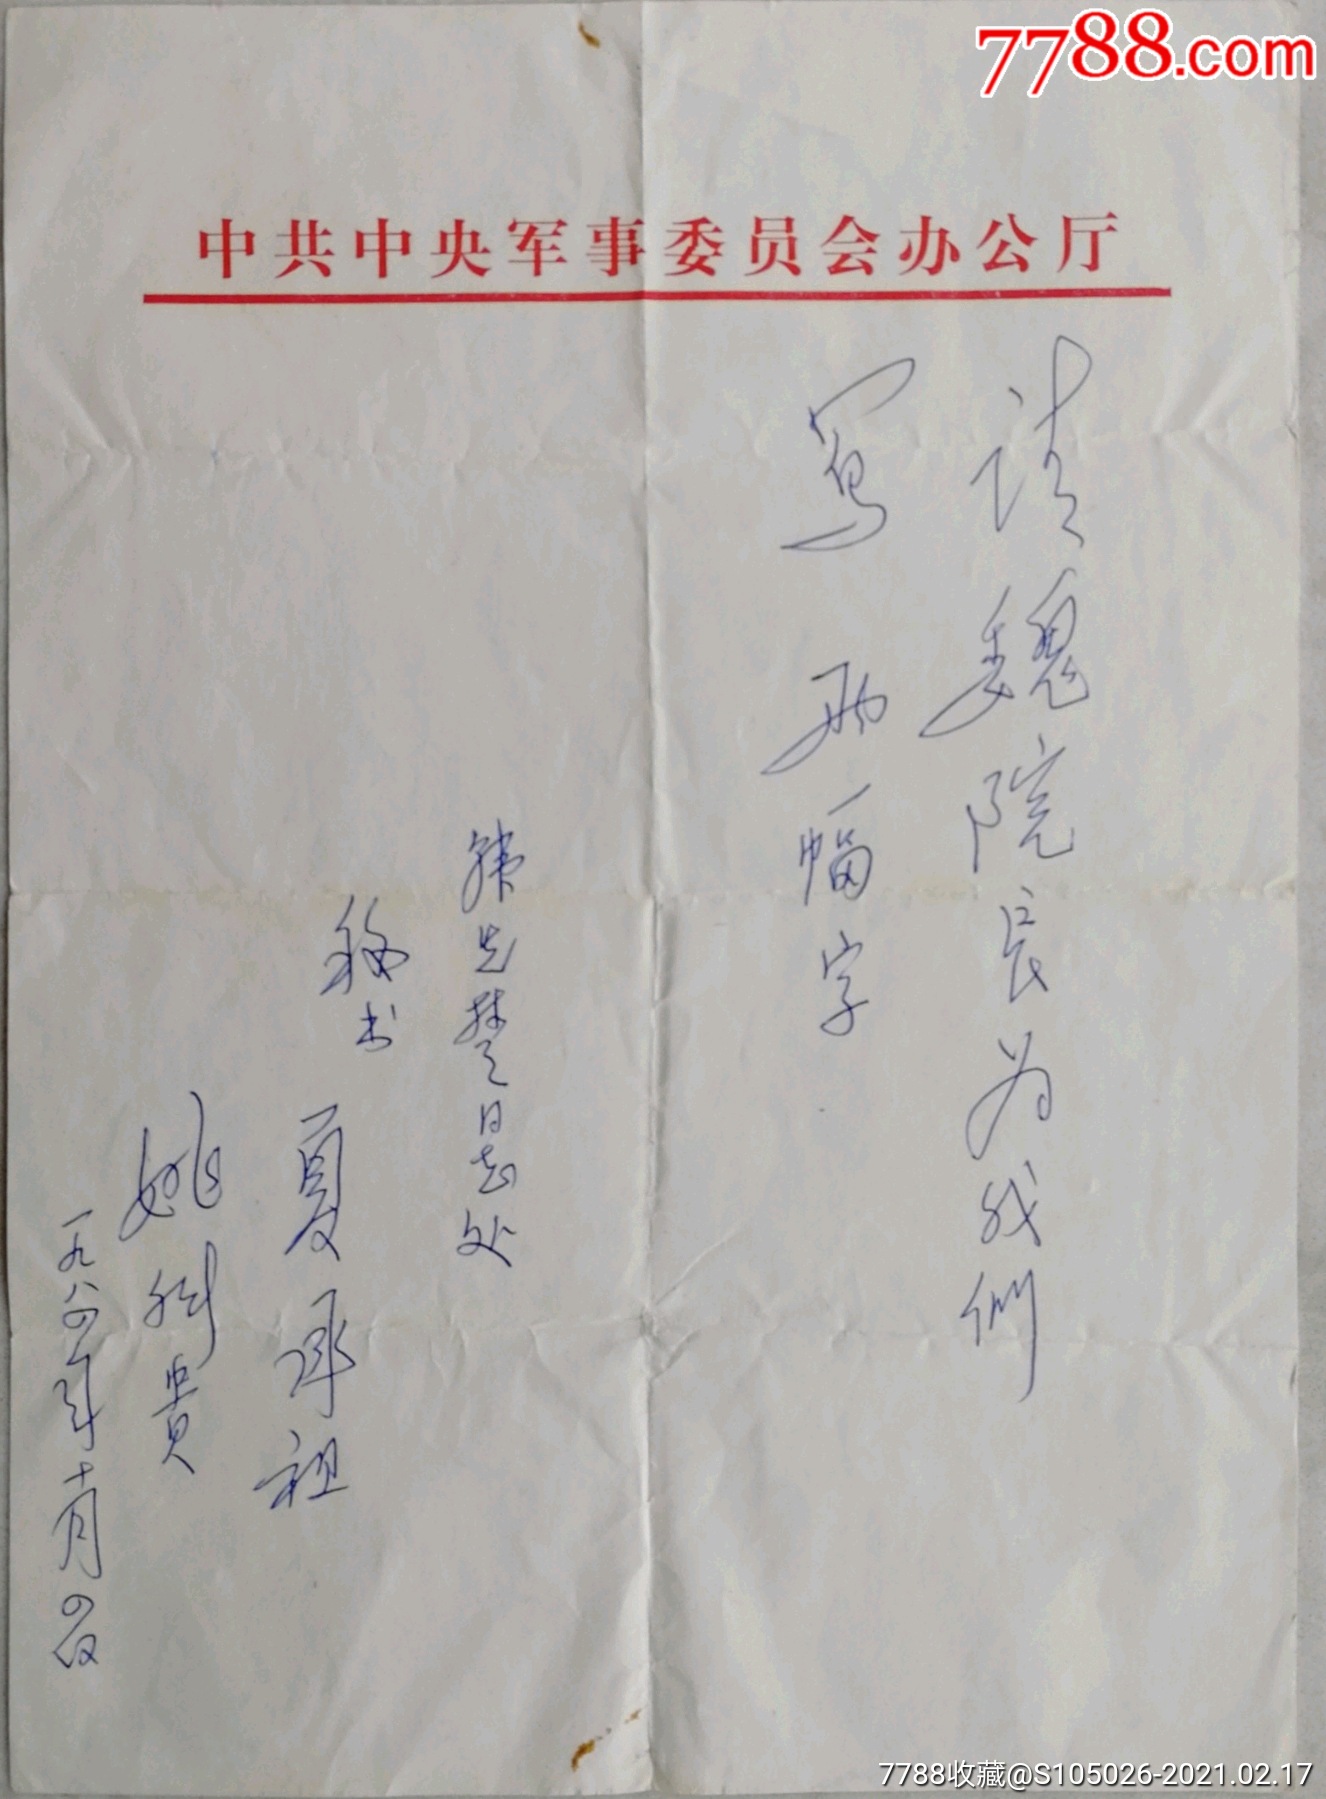 7788.com
中共中央军事委员会办公厅
请魏院长为我们
寫两幅字
韩先楚同志处
秘书 夏承祖
姚科贵
一九八四年十月
7788收藏@S105026-2021.02.17